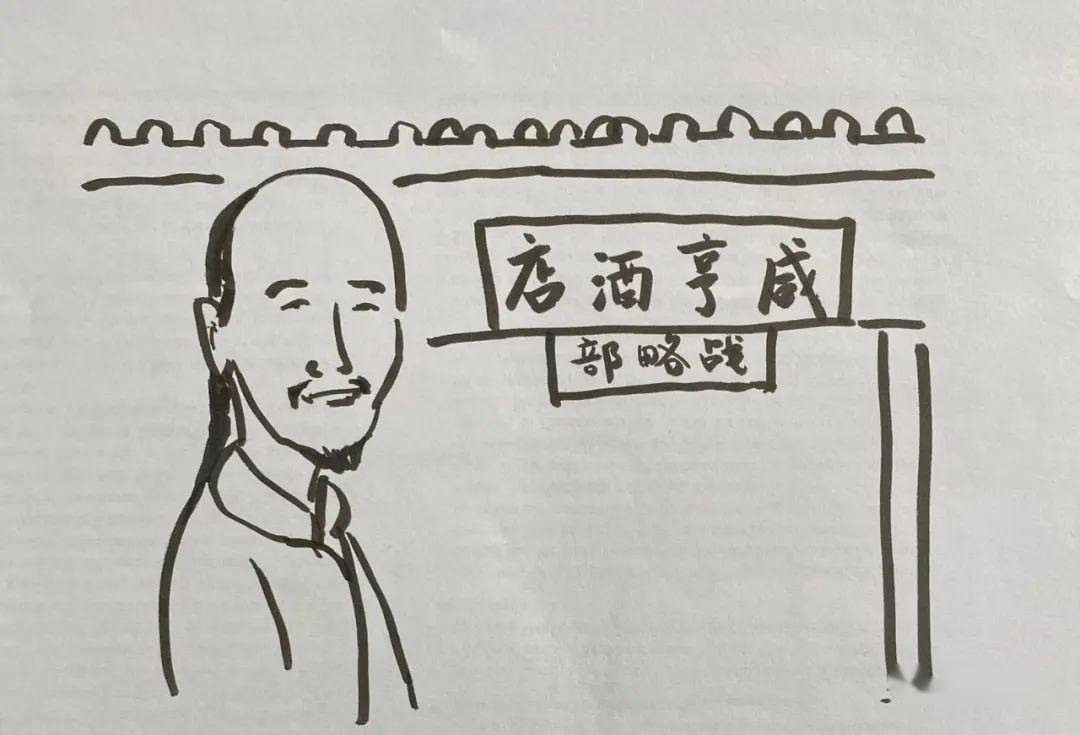 咸亨酒店
战略部